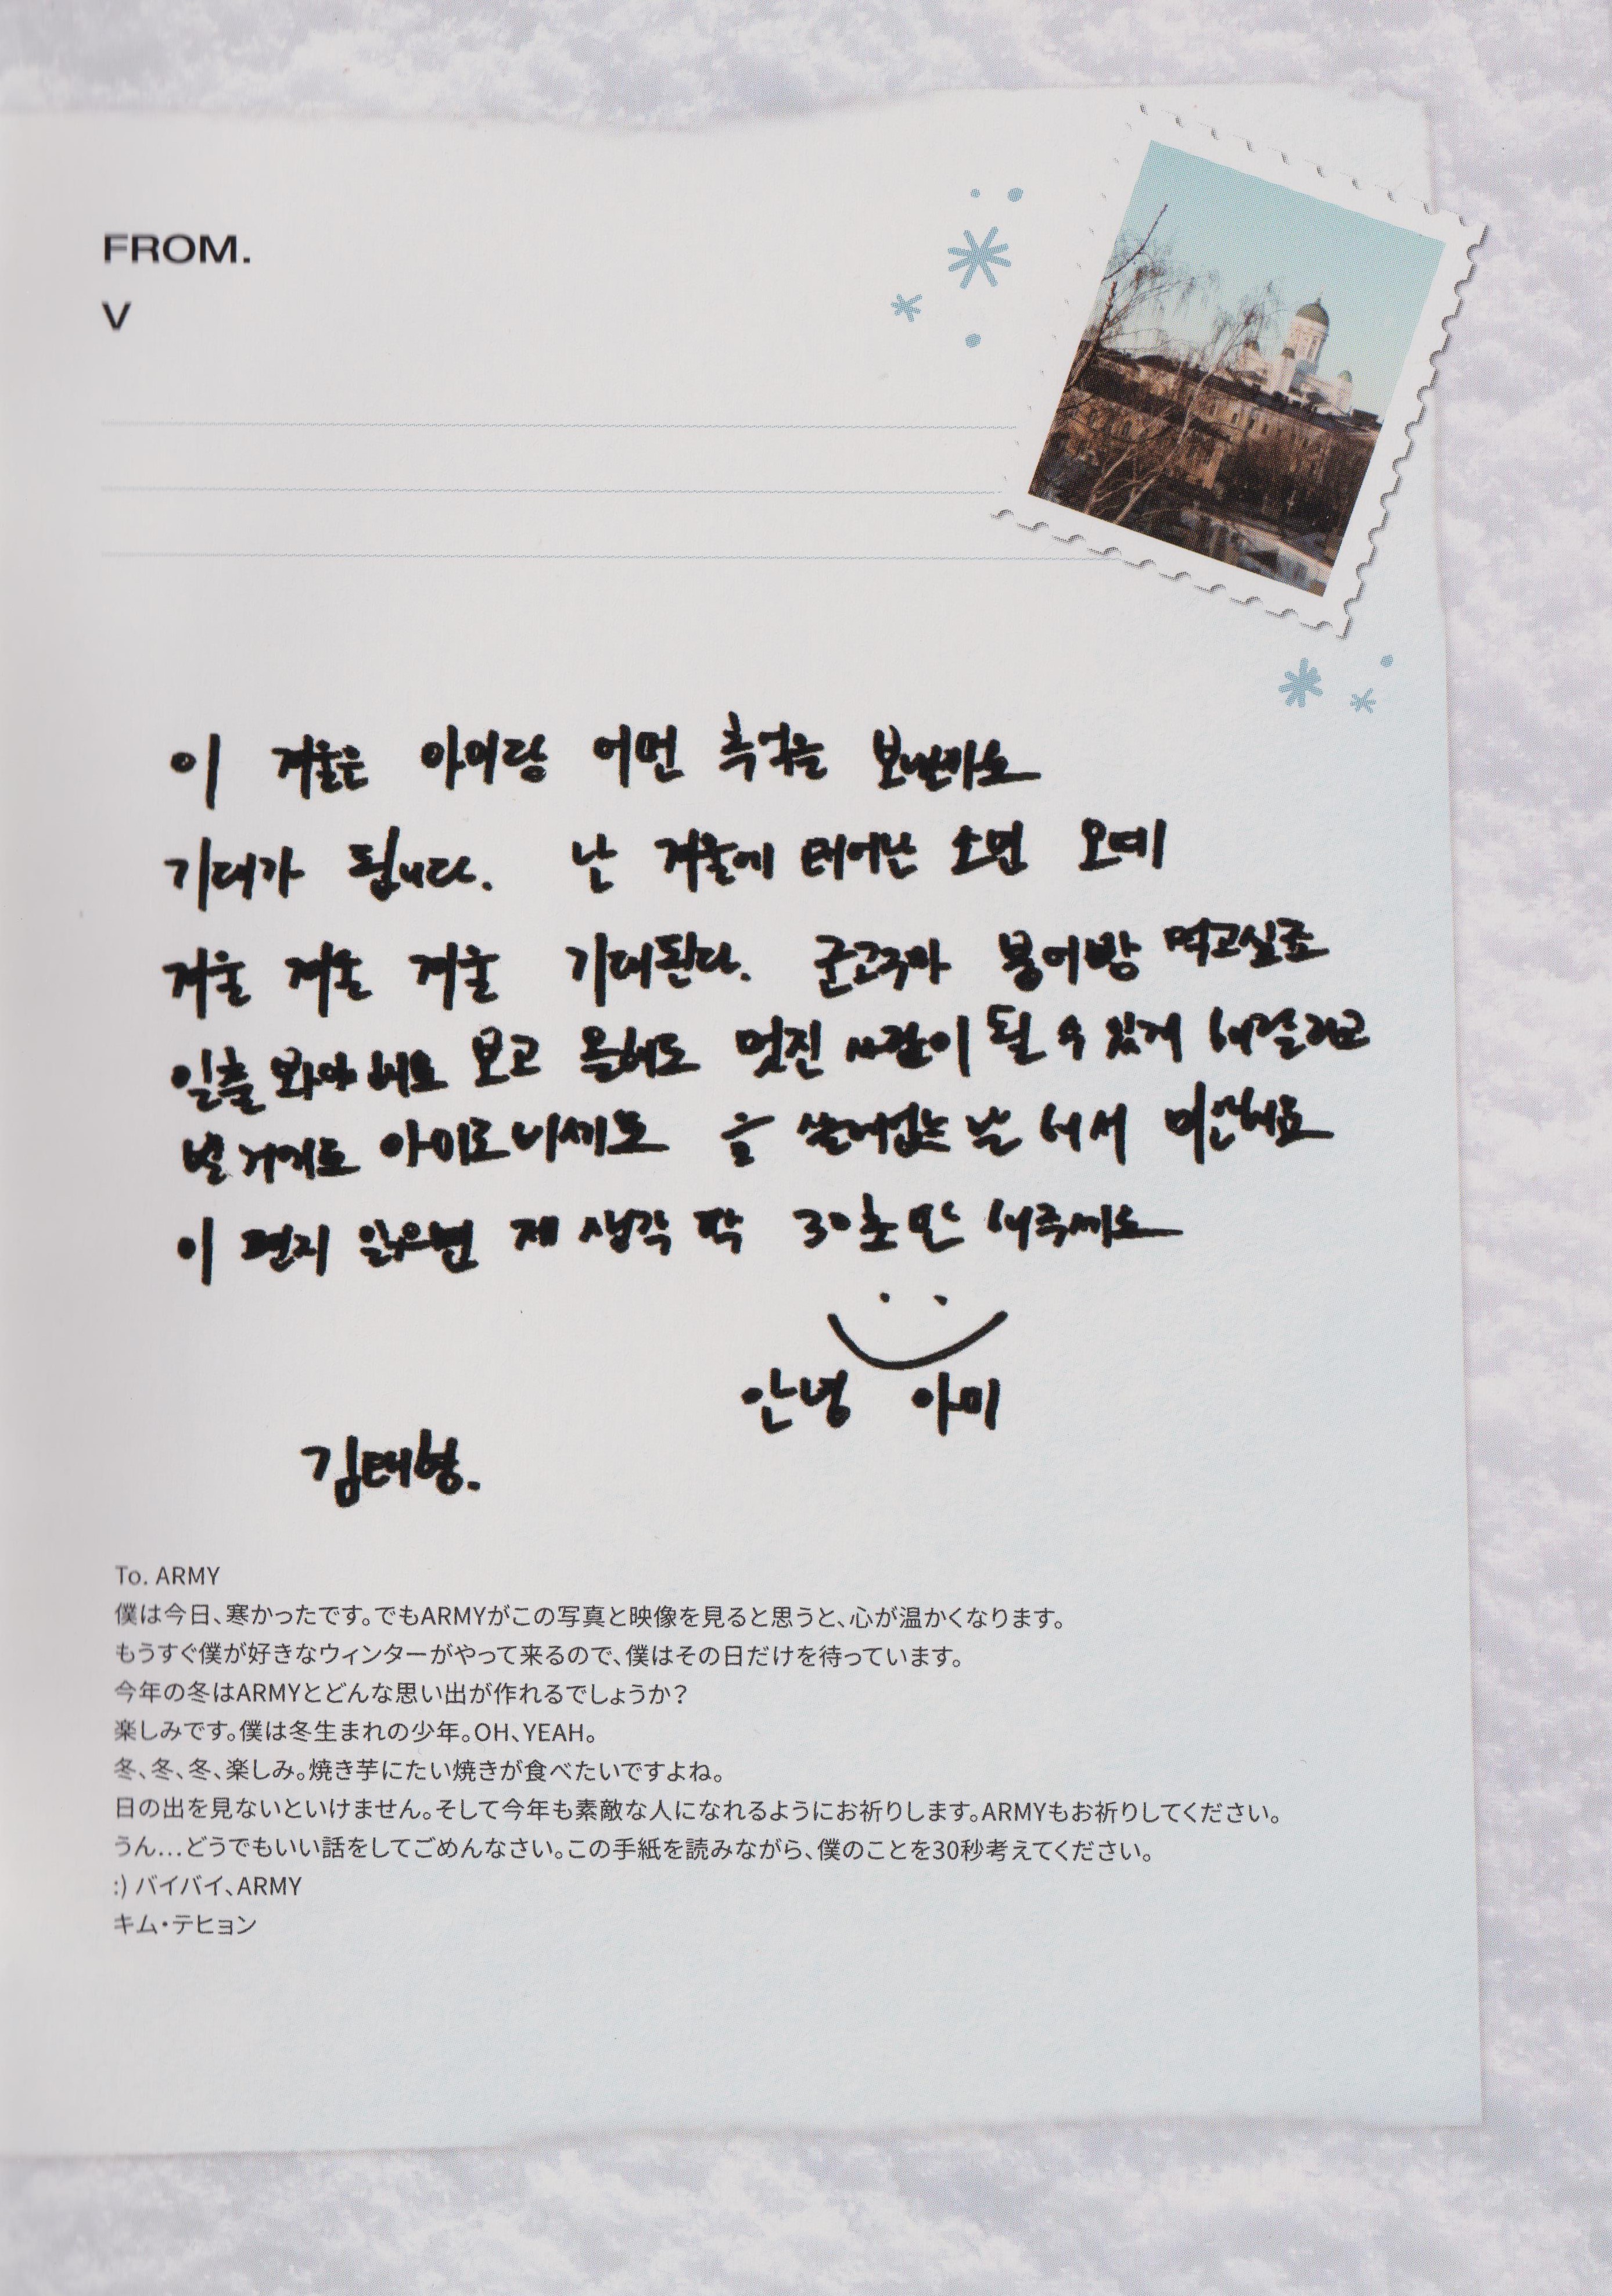 FROM.
V
이 겨울은 아미랑 어떤 추억을 보낼까요
기대가 됩니다. 난 겨울에 태어난 소년 오예
겨울 겨울 겨울 기대된다. 군고구마 붕어빵 먹고싶죠
일출 봐야 해요 보고 올해도 멋진 사람이 될 수 있게 해달라고
빌 거예요 아미도 비세요 음 쓸데없는 말 해서 미안해요
이 편지 읽으면 제 생각 딱 30초만 해주세요
안녕 아미
김태형.
To. ARMY
僕は今日、寒かったです。でもARMYがこの写真と映像を見ると思うと、心が温かくなります。
もうすぐ僕が好きなウィンターがやって来るので、僕はその日だけを待っています。
今年の冬はARMYとどんな思い出が作れるでしょうか？
楽しみです。僕は冬生まれの少年。OH、YEAH。
冬、冬、冬、楽しみ。焼き芋にたい焼きが食べたいですよね。
日の出を見ないといけません。そして今年も素敵な人になれるようにお祈りします。ARMYもお祈りしてください。
うん…どうでもいい話をしてごめんなさい。この手紙を読みながら、僕のことを30秒考えてください。
:) バイバイ、ARMY
キム・テヒョン